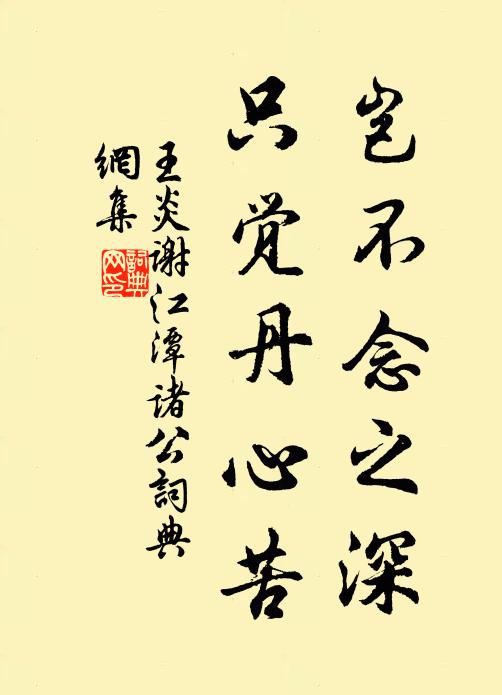 岂不念之深
只觉丹心苦
王炎谢江潭诸公詞典
網集
詞典
网印